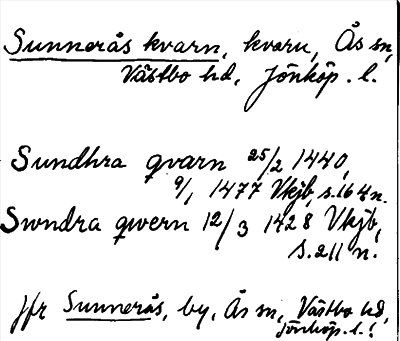 Sunnerås kvarn, kvarn, Ås sn,
Västbo hd, Jönköp. l.
Sundhra qvarn 25/2 1440,
9/1 1477 Vkjb, s. 164 n.
Swndra qwern 12/3 1428 Vkjb,
s. 211 n.
jfr Sunnerås, by, Ås sn, Västbo hd,
Jönköp. l.!